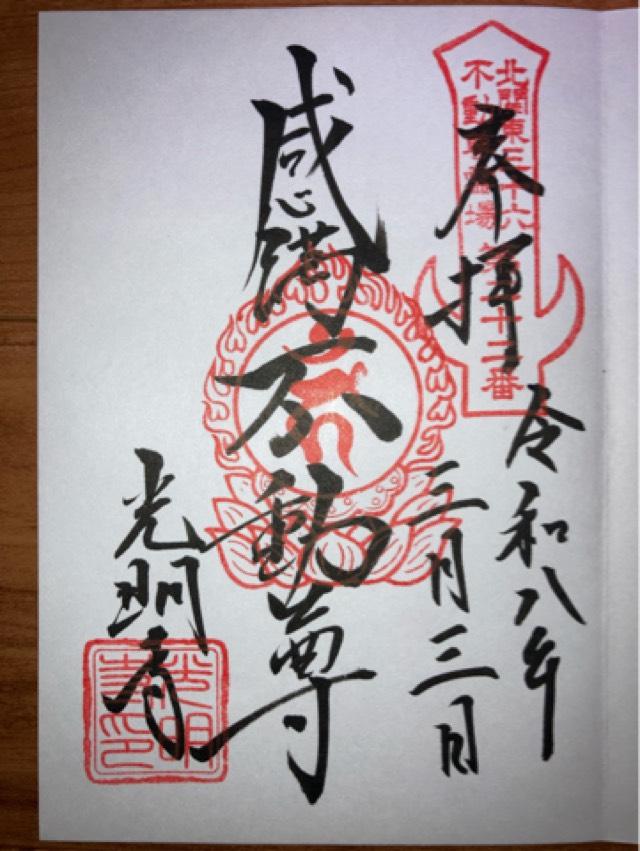 北關東三十六
不動尊霊場
第二十二番
奉拝
令和八年
三月三日
感満不動尊
光明寺